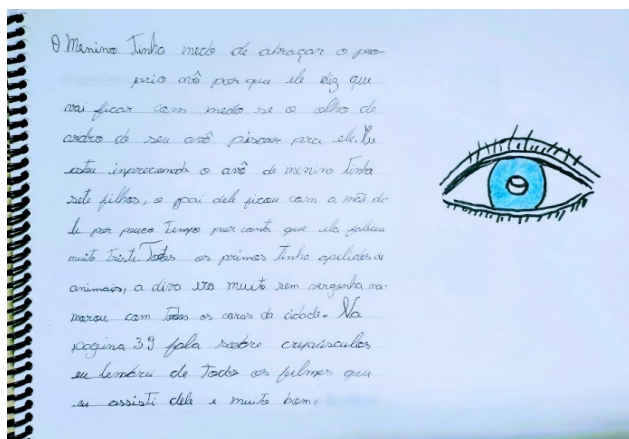 O Menino Tinha medo de abraçar o pro-
prio avô por que ele diz que
vai ficar com medo se o olho de
vidro de seu avô piscar pra ele. Eu
estou inprecionada o avô do menino tinha
sete filhos, o pai dele ficou com a mãe de
le por pouco Tempo por conta que ela faleceu
muito triste. Todos os primos Tinha apelidos de
animais, a diva era muito sem vergonha na-
morou com Todos os caras da cidade. Na
pagina 39 fala sobre crepúsculos
eu lembrei de Todos os filmes que
eu assisti dele e muito bom.